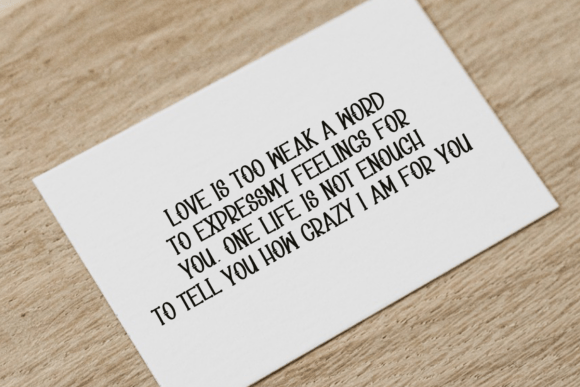 LOVE IS TOO WEAK A WORD
TO EXPRESSMY FEELINGS FOR
YOU. ONE LIFE IS NOT ENOUGH
TO TELL YOU HOW CRAZY I AM FOR YOU